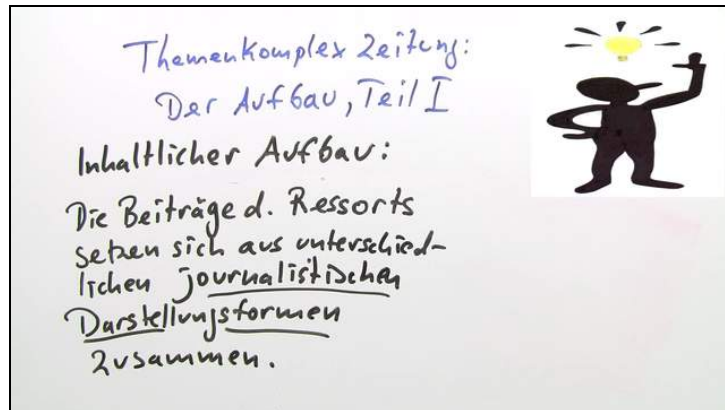 Themenkomplex Zeitung:
Der Aufbau, Teil I
Inhaltlicher Aufbau:
Die Beiträge d. Ressorts
setzen sich aus unterschied-
lichen journalistischen
Darstellungsformen
zusammen.